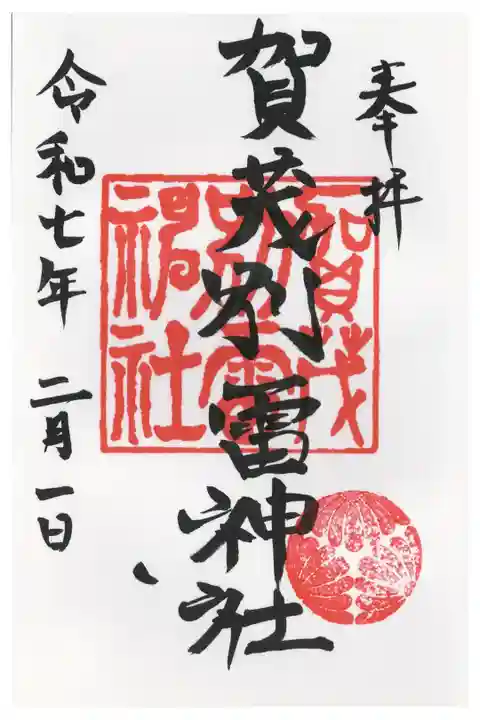 奉拝
賀茂別雷神社
賀茂別雷神社
令和七年 二月一日